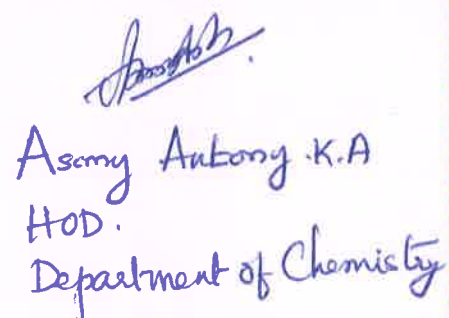 Antony K.A
HOD.
Department of Chemistry